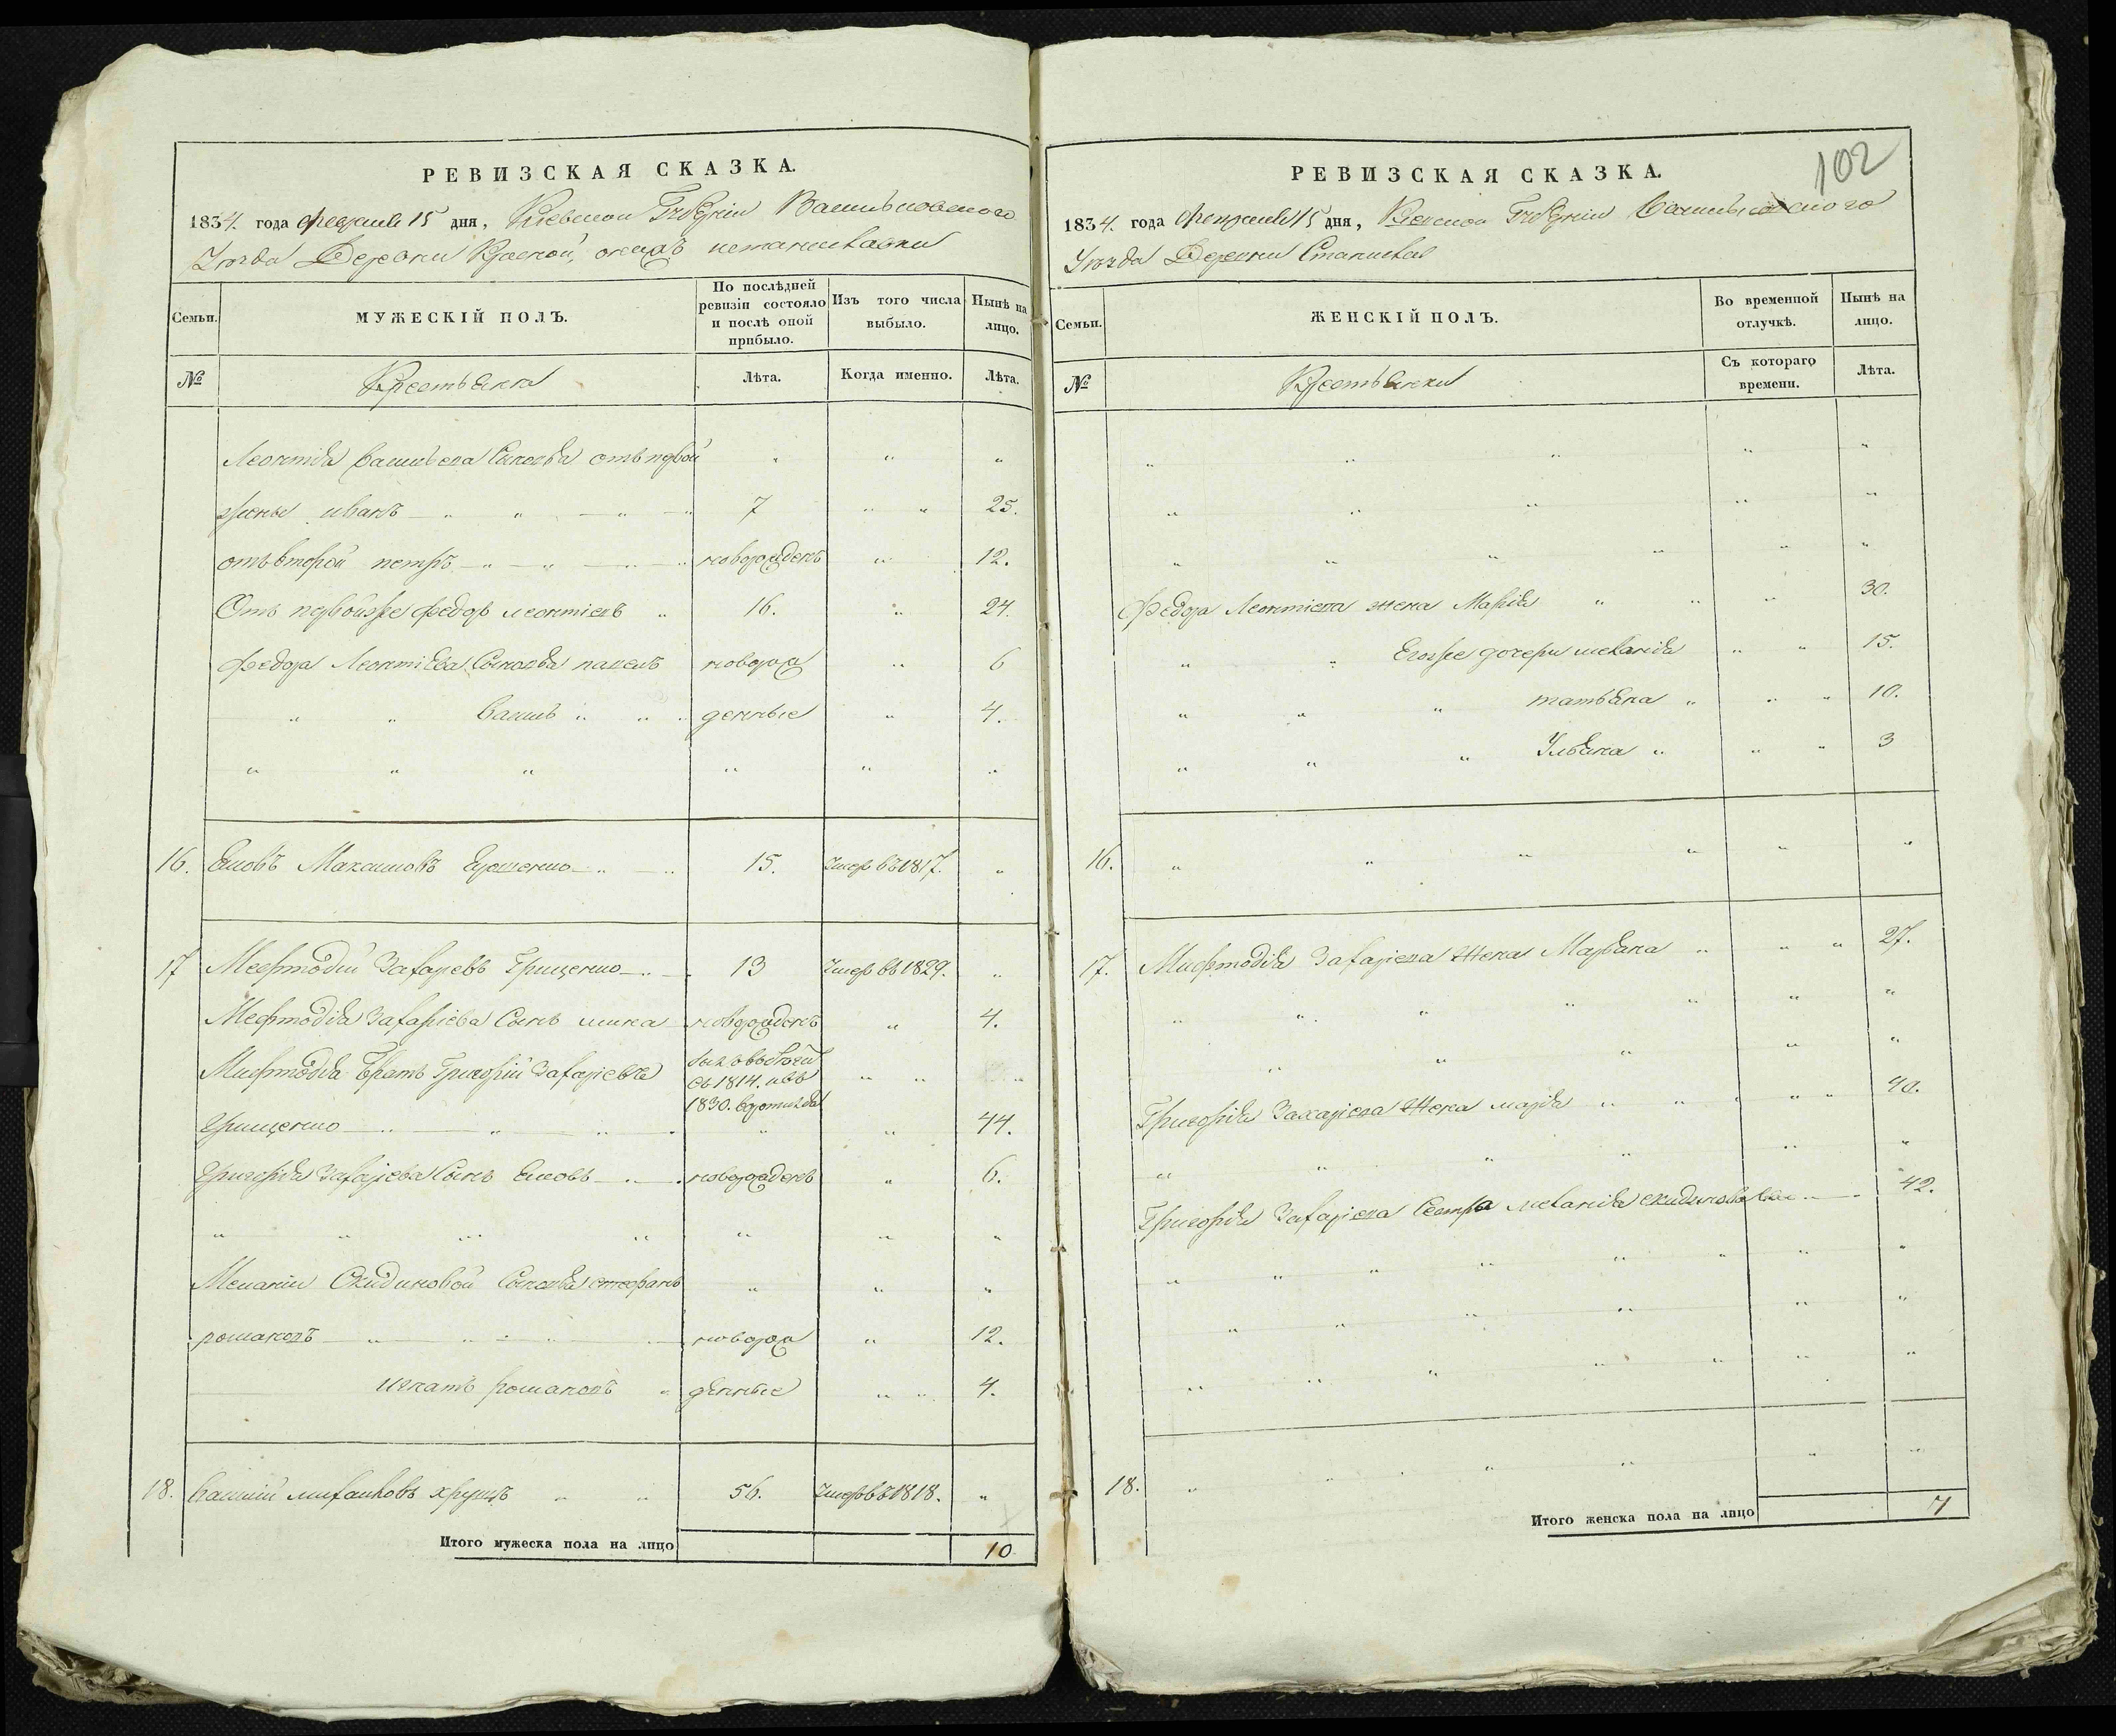 РЕВИЗСКАЯ СКАЗКА.
1834. года февраля 15 дня, Киевской Губернiи Васильковского
Уезда Деревни
Семьи.
МУЖЕСКIЙ ПОЛЪ.
По послѣдней ревизiи состояло и послѣ оной прибыло.
Изъ того числа выбыло.
Нынѣ на лицо.
№
Крестьяне
Лѣта.
Когда именно.
Лѣта.
Леонтiя Васильева Сыновья отъ первой
жены иванъ 7 25.
отъ второй петръ новорожденъ 12.
Отъ первой же федоръ леонтiевъ 16. 24.
федора Леонтiева Сыновья павелъ новорож 6
василь денные 4.
16. Яковъ Максимовъ 15. Умер въ 1817.
17 Мефтодiй Захарiевъ Грищенко 13 Умер въ 1829.
Мефтодiя Захарiева Сынъ новорожденъ 4.
Мифтодiя Братъ Григорiй Захарiевъ
былъ въ бегах
съ 1814. и въ
1830.
Грищенко 44.
Григорiя Захарiева Сынъ Яковъ новорожденъ 6.
Меланiи Скидиновой Сыновья стефанъ
романовъ новорож 12.
игнатъ романовъ денные 4.
18. 56. Умеръ въ 1818.
Итого мужеска пола на лицо 10
102
РЕВИЗСКАЯ СКАЗКА.
1834. года февраля 15 дня, Киевской Губернiи Васильковского
Уезда Деревни
Семьи.
ЖЕНСКIЙ ПОЛЪ.
Во временной отлучкѣ.
Нынѣ на лицо.
№
Крестьянки
Съ котораго времени.
Лѣта.
Федора Леонтiева жена Марiя 30.
Его же дочери меланiя 15.
татьяна 10.
Ульяна 3
16.
17. Мифтодiя Захарiева Жена Марьяна 27.
Григорiя Захарiева Жена марiя 40.
Григорiя Захарiева Сестра меланiя скидинова 42.
18.
Итого женска пола на лицо 7